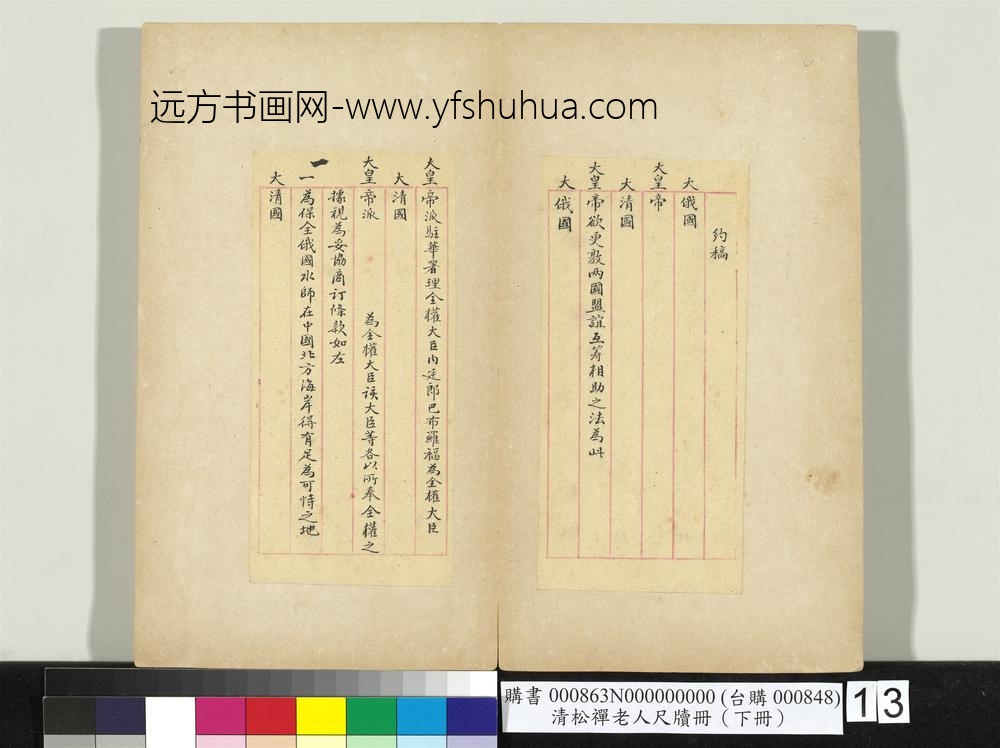 远方书画网-www.yfshuhua.com
约稿
大俄國
大皇帝
大清國
大皇帝欲更敦两國盟誼互筹相助之法為此
大俄國
大皇帝派駐華署理全權大臣内廷郎巴布羅福為全權大臣
大清國
大皇帝派 為全權大臣該大臣等各以所奉全權之
據視為妥協商订條款如左
一為保全俄國水師在中國北方海岸得有足為可恃之地
大清國
購書 000863N000000000 (台購 000848)
清松禪老人尺牘冊（下冊）
13